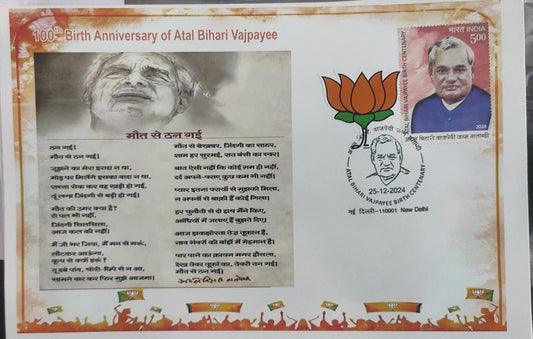 100th Birth Anniversary of Atal Bihari Vajpayee
मौत से ठन गई
ठन गई!
मौत से ठन गई!
जूझने का मेरा इरादा न था,
मोड़ पर मिलेंगे इसका वादा न था,
रास्ता रोक कर वह खड़ी हो गई,
यूं लगा जिंदगी से बड़ी हो गई।
मौत की उमर क्या है?
दो पल भी नहीं,
जिंदगी सिलसिला,
आज कल की नहीं।
मैं जी भर जिया, मैं मन से मरूं,
लौटकर आऊंगा,
कूच से क्यों डरूं?
तू दबे पांव, चोरी-छिपे से न आ,
सामने वार कर फिर मुझे आजमा।
मौत से बेखबर, जिंदगी का सफर,
शाम हर सुरमई, रात बंसी का स्वर।
बात ऐसी नहीं कि कोई गम ही नहीं,
दर्द अपने-पराए कुछ कम भी नहीं।
प्यार इतना परायों से मुझको मिला,
न अपनों से बाकी है कोई गिला।
हर चुनौती से दो हाथ मैंने किए,
आंधियों में जलाए हैं बुझते दिए।
आज झकझोरता तेज तूफान है,
नाव भंवरों की बांहों में मेहमान है।
पार पाने का कायम मगर हौसला,
देख तेवर तूफां का, तेवरी तन गई।
मौत से ठन गई।
भारत INDIA
5.00
ATAL BIHARI VAJPAYEE BIRTH CENTENARY
2024
अटल बिहारी वाजपेयी जन्म शताब्दी
ATAL BIHARI VAJPAYEE BIRTH CENTENARY
25-12-2024
नई दिल्ली-110001 New Delhi